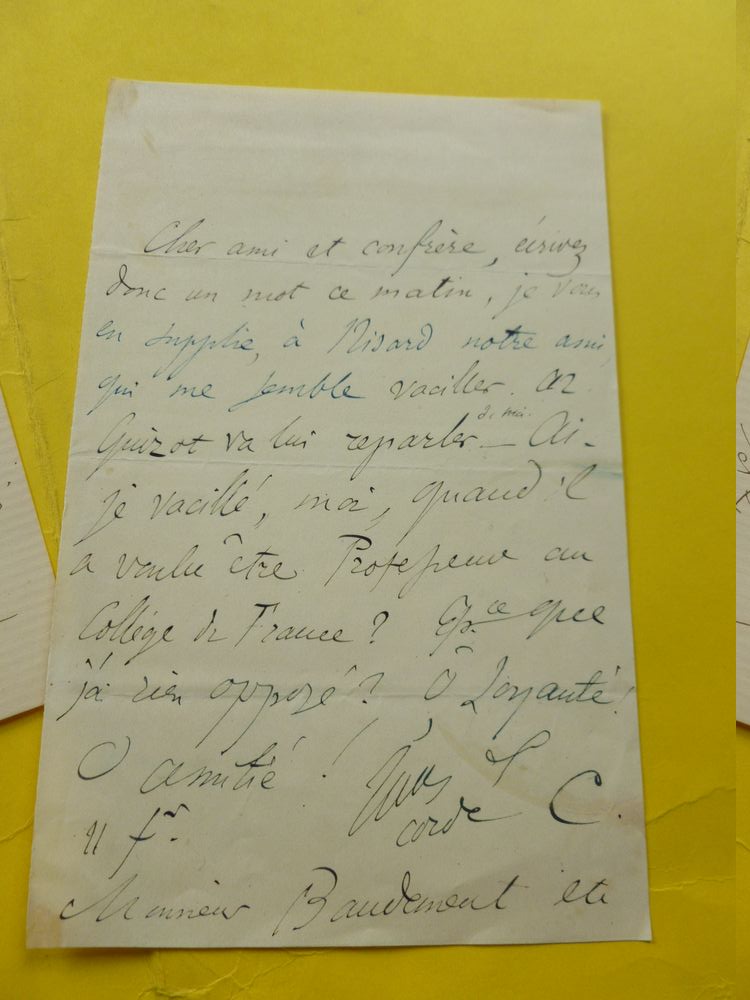 Cher ami et confrère, écrivez
donc un mot ce matin, je vous
en supplie, à Nisard notre ami,
qui me semble vaciller. Mr
Guizot va lui reparler — Ai-
je vacillé, moi, quand il
a voulu être Professeur au
Collège de France? Est-ce que
j'ai rien opposé? Ô Loyauté!
O amitié!
11 fr.
corde C.
Monsieur Baudement etc